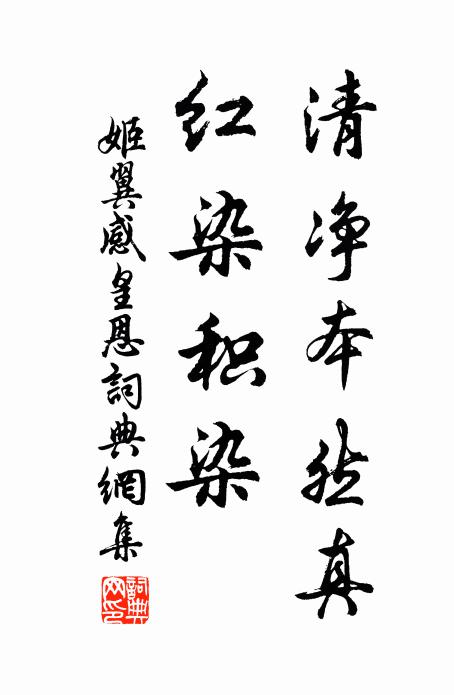 清净本然真
红染积染
姬翼感皇恩詞典網集
詞典网印